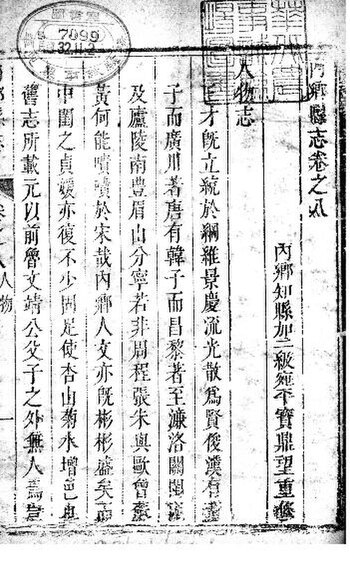 內鄉縣志卷之八
內鄉知縣加二級宛平寶鼎望重修
人物志
才既立統於綱維景慶流光散為賢俊漢有董
子而廣川著唐有韓子而昌黎著至濂洛關閩
及廬陵南豐眉山分寧若非周程張朱與歐曾蘇
黃何能嘖嘖於宋哉內鄉人文亦既彬彬盛矣而
中閨之貞媛亦復不少固足使杏山菊水增色也
舊志所載元以前魯文靖公父子之外無人焉豈
人物
7099
32.11.2